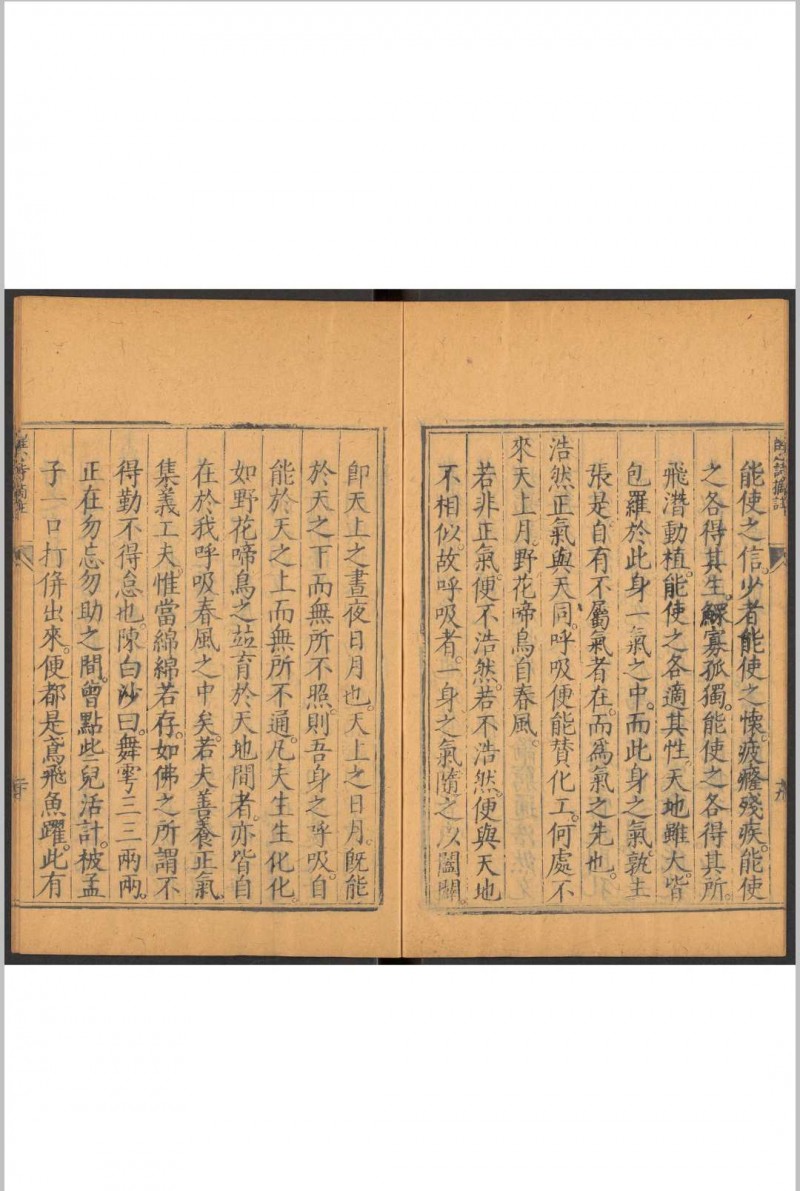 能使之信。少者能使之懷。疲癃殘疾。能使
之各得其生。鰥寡孤獨。能使之各得其所。
飛潛動植。能使之各適其性。天地雖大。皆
包羅於此身一氣之中。而此身之氣孰主
張是。自有不屬氣者在。而為氣之先也。
浩然正氣與天同。呼吸便能贊化工。何處不
來天上月。野花啼鳥自春風。
若非正氣。便不浩然。若不浩然。便與天地
不相似。故呼吸者。一身之氣隨之以闔闢。
即天上之晝夜日月也。天上之日月。既能
於天之下而無所不照。則吾身之呼吸。自
能於天之上而無所不通。凡夫生生化化。
如野花啼鳥之茲育於天地間者。亦皆自
在於我呼吸春風之中矣。若夫善養正氣。
集義工夫。惟當綿綿若存。如佛之所謂不
得勤不得怠也。陳白沙曰。舞雩三三兩兩。
正在勿忘勿助之間。曾點些兒活計。被孟
子一口打併出來。便都是鳶飛魚躍。此有